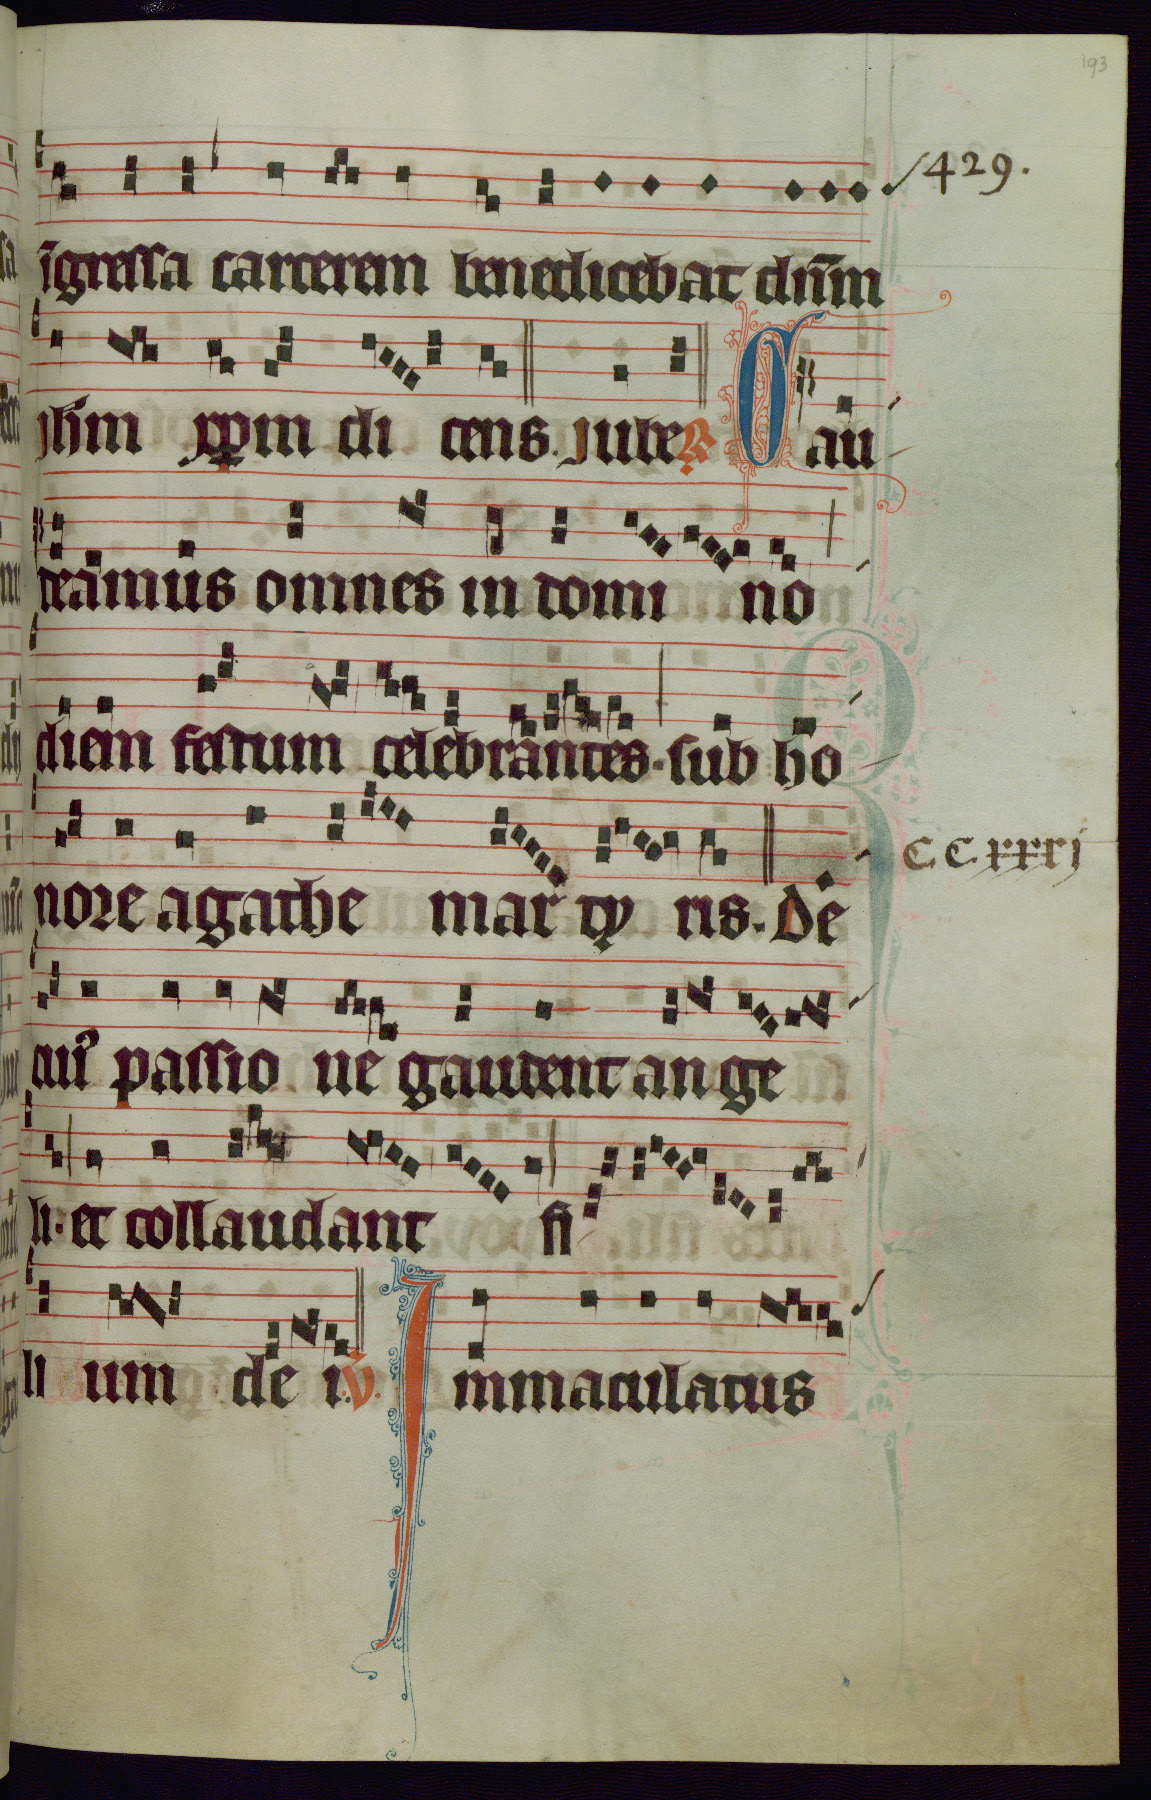 193
429.
īgressa carcerem benedicebat dn̄m
Jhm̄ xp̄m di cens. Jube ℟ Gau
deamus omnes in domi no
diem festum celebrantes. sub ho
nore agathe mar ty ris. De
C.C.xxxj
cuiꝰ passio ne gaudent ange
li. et collaudant fi
li um de i. ℣. Immaculatus